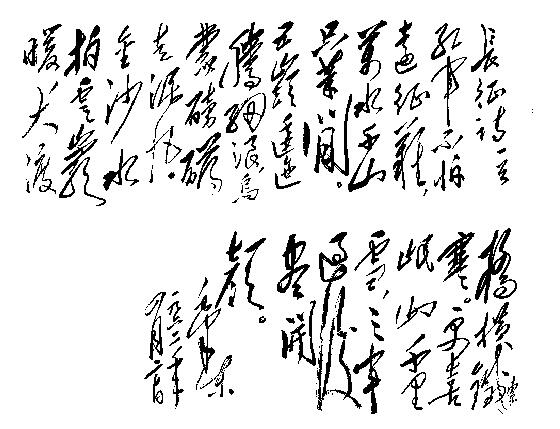 長征詩一首
紅軍不怕
遠征難,
萬水千山
只等閒。
五嶺逶迤
騰細浪,烏
蒙磅礴
走泥丸。
金沙水
拍雲巖
暖大渡
橋橫鐵索
寒。更喜
岷山千里
雪,三軍
過後
盡開
顏。
毛澤東
一九六二年